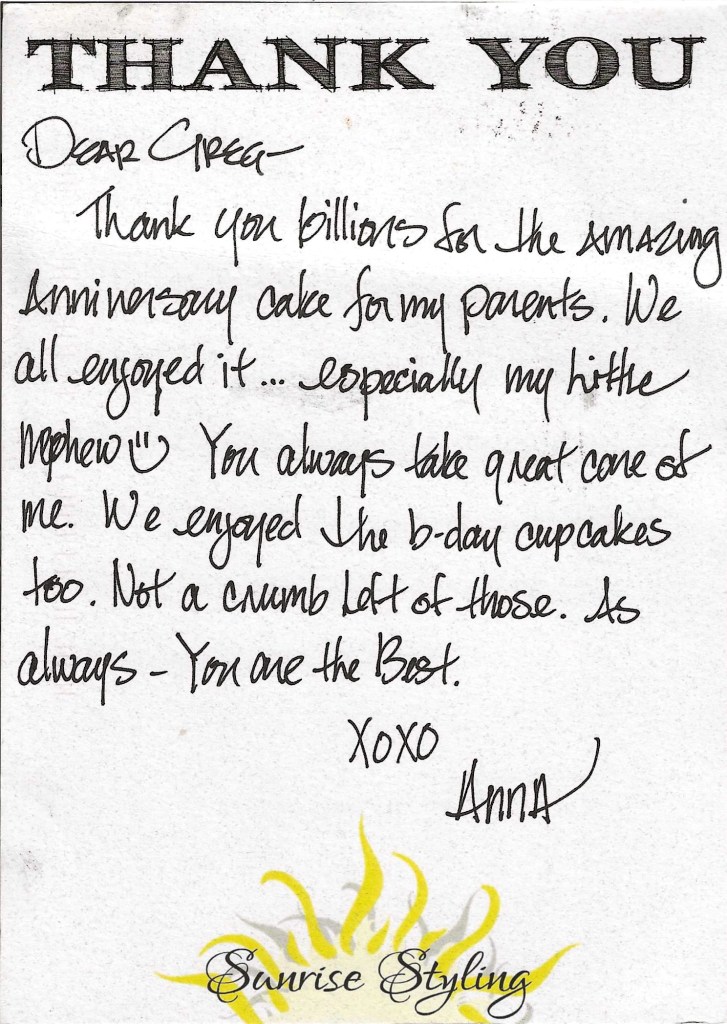 THANK YOU
Dear Greg-
Thank you billions for the amazing
Anniversary cake for my parents. We
all enjoyed it... especially my little
nephew :) You always take great care of
me. We enjoyed the b-day cupcakes
too. Not a crumb left of those. As
always - You are the Best.
XOXO
Anna
Sunrise Styling